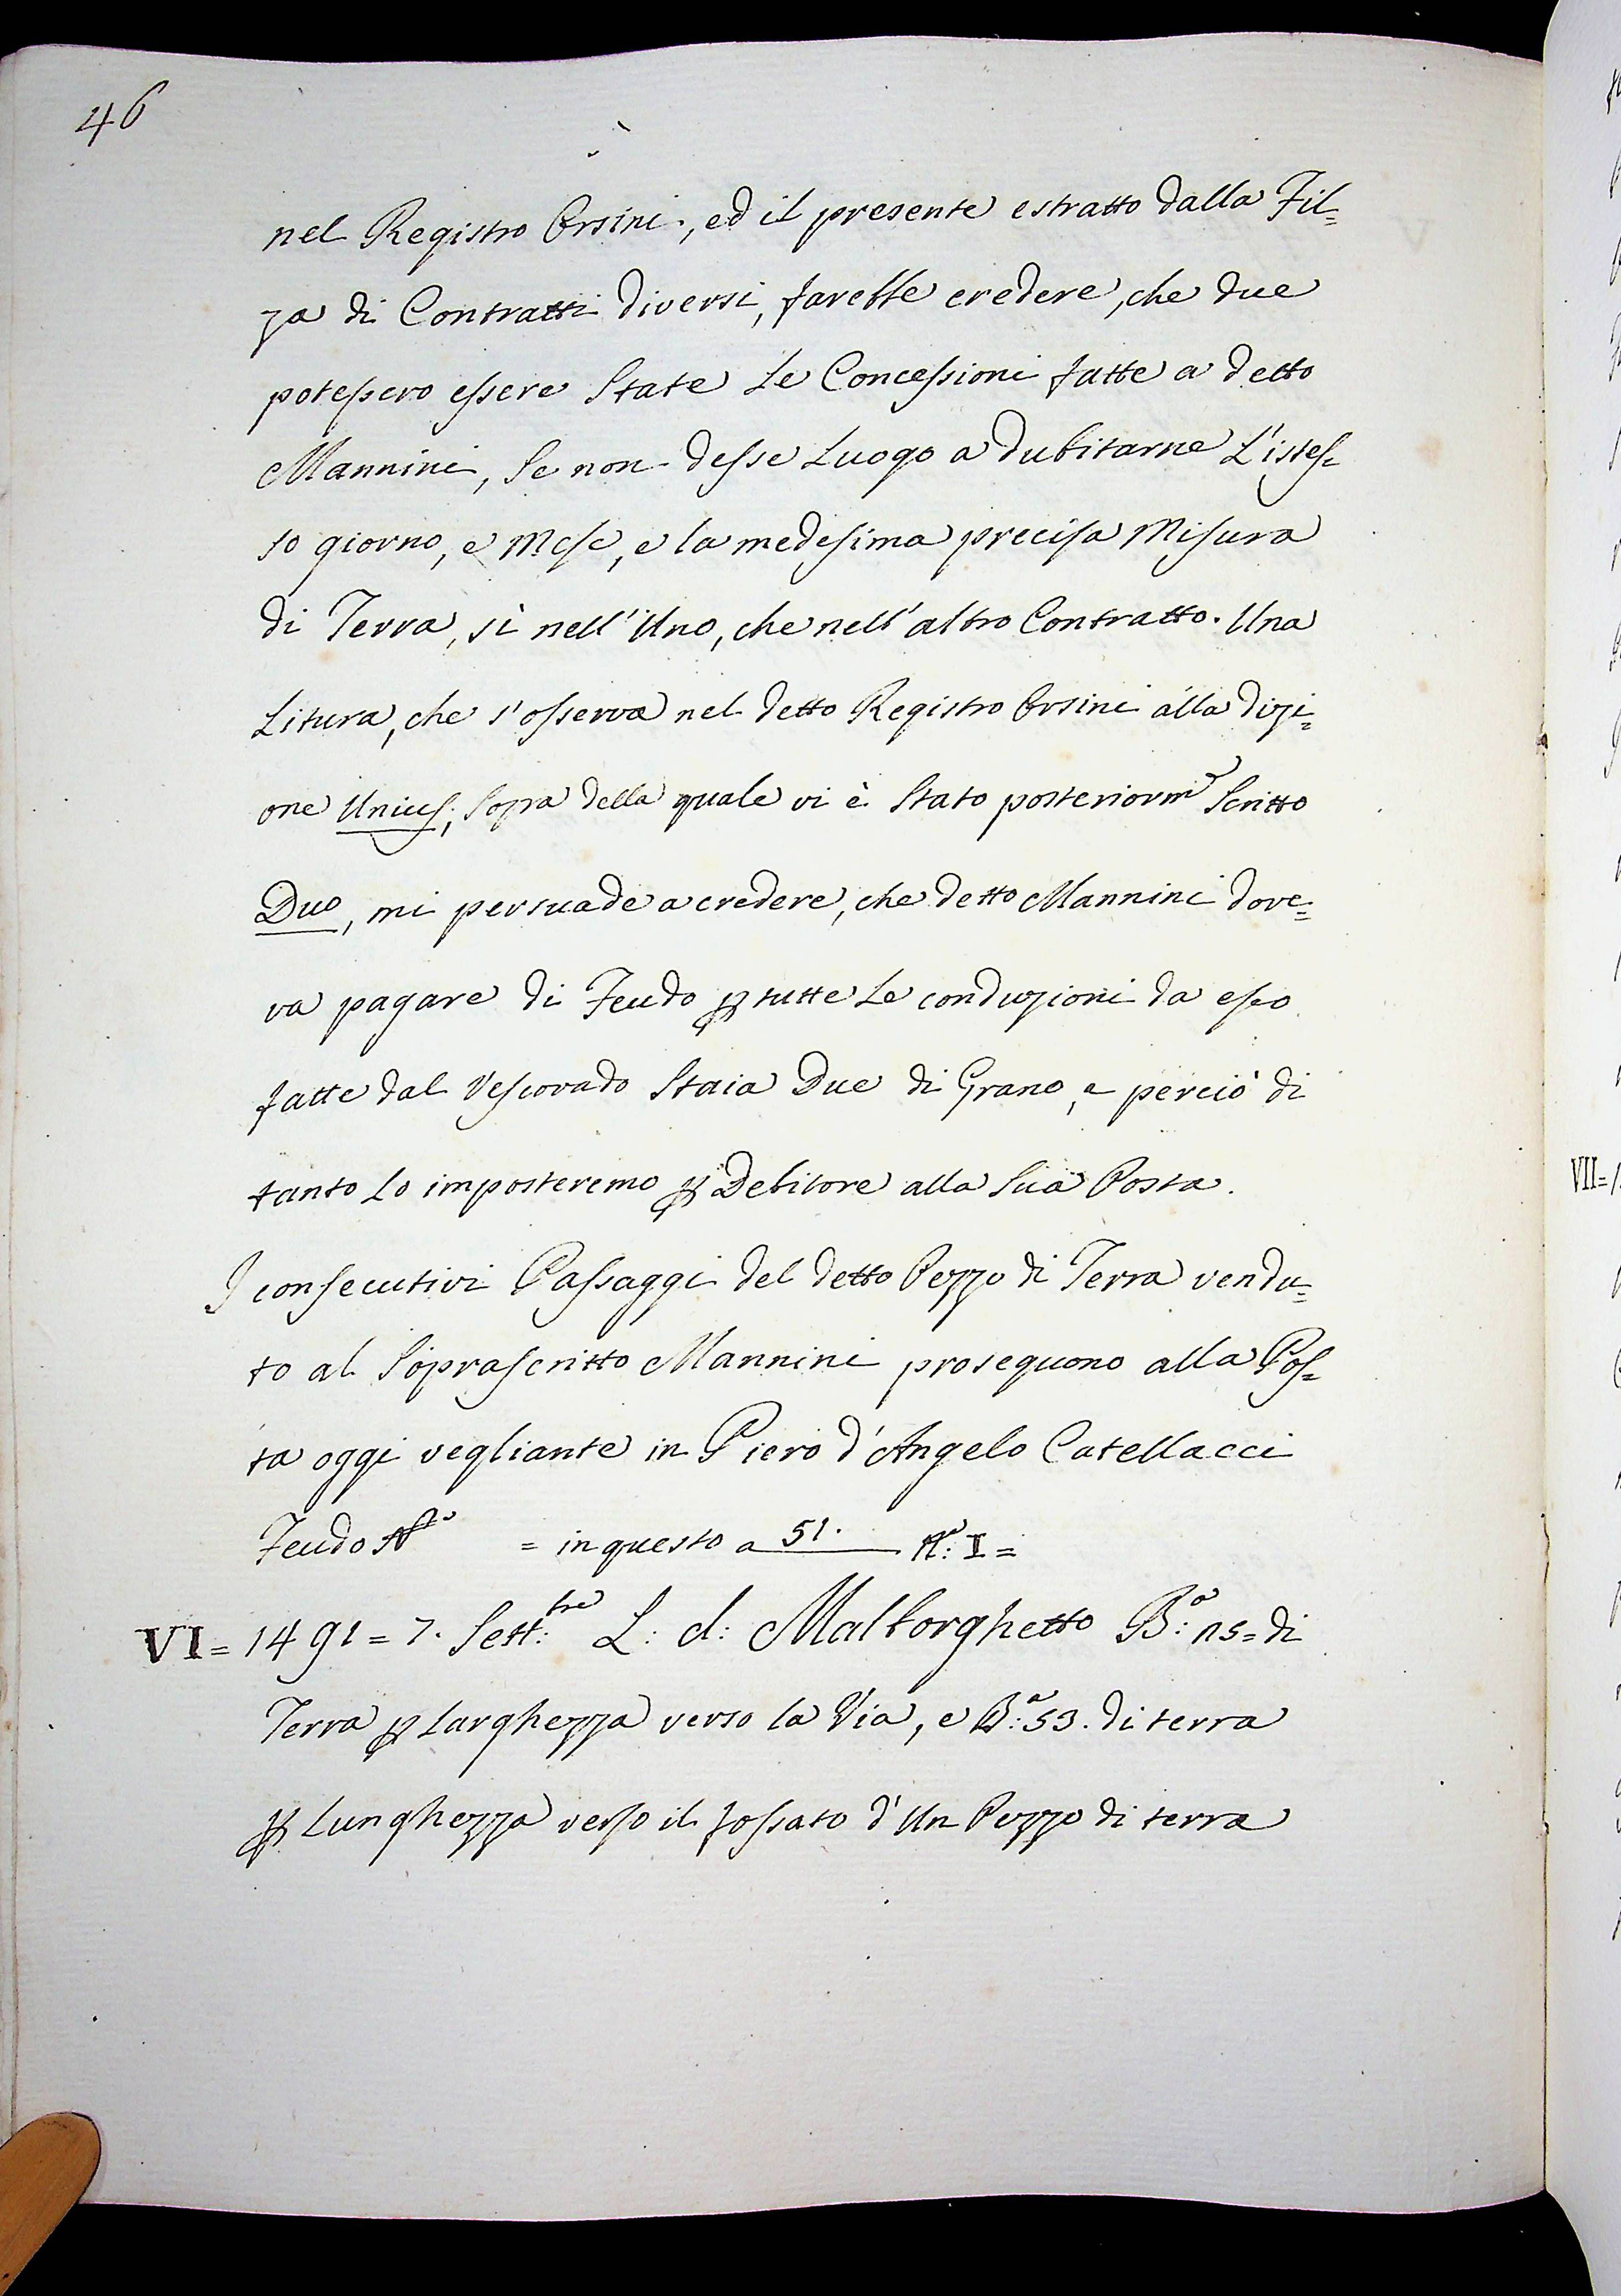 46
nel Registro Orsini, ed il presente estratto dalla Fil=
za di Contratti diversi, farebbe credere, che due
potessero essere State Le Concessioni fatte a detto
Mannini, Se non desse Luogo a dubitarne L'istes=
so giorno, e Mese, e la medesima precisa Misura
di Terra, sì nell'Uno, che nell'altro Contratto. Una
Litura, che s'osserva nel detto Registro Orsini alla dizi=
one Unius, Sopra della quale vi è Stato posteriorm.e Scritto
Duo, mi persuade a credere, che detto Mannini dove=
va pagare di Feudo p tutte Le conduzioni da esso
fatte dal Vescovado Staia Due di Grano, e perciò di
tanto Lo imposteremo p Debitore alla Sua Posta.
I consecutivi Passaggi del detto Pezzo di Terra vendu=
to al Soprascritto Mannini proseguono alla Pos=
ta oggi vegliante in Piero d'Angelo Catellacci
Feudo N.o = in questo a 51. N.o: I =
VI = 1491 = 7. Sett:bre L: d: Malborghetto B:a 15 = di
Terra p Larghezza verso la Via, e B:a 53. di terra
p Lunghezza verso il fossato d'Un Pezzo di terra
VII =